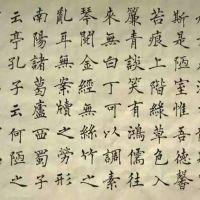 斯是陋室惟吾德馨
苔痕上階綠草色入
簾青談笑有鴻儒往
來無白丁可以調素
琴閱金經無絲竹之
亂耳無案牘之勞形
南陽諸葛廬西蜀子
云亭孔子云何陋之